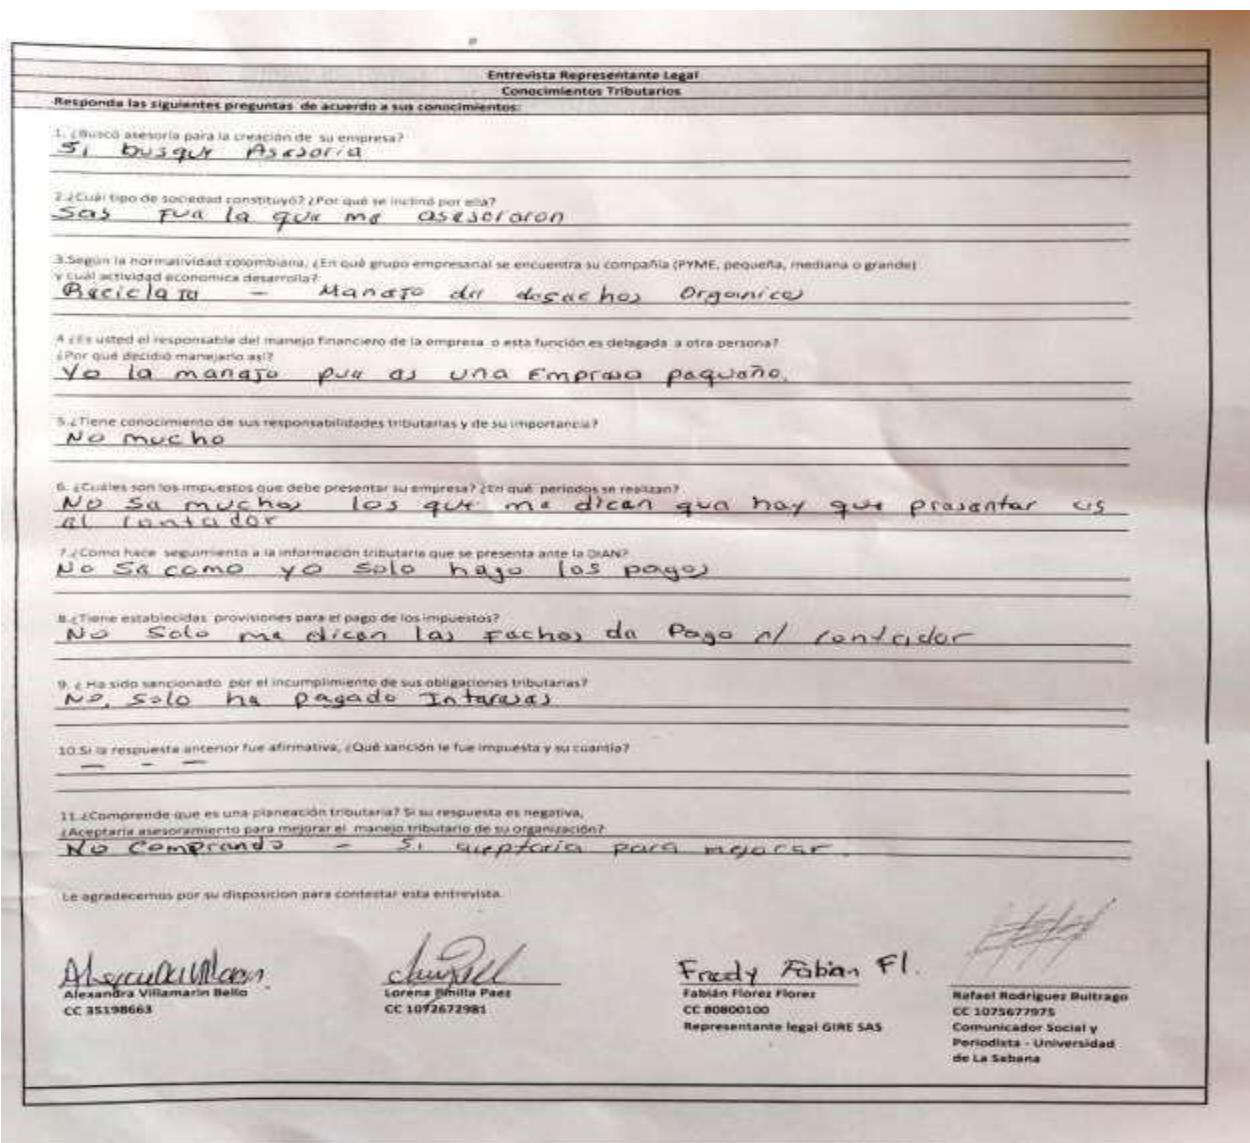 Entrevista Representante Legal
Conocimientos Tributarios
Responda las siguientes preguntas de acuerdo a sus conocimientos:
1. ¿Buscó asesoría para la creación de su empresa?
Si busque Asesoria
2.¿Cuál tipo de sociedad constituyó? ¿Por qué se inclinó por ella?
Sas Fue la que me asesoraron
3.Según la normatividad colombiana, ¿En qué grupo empresarial se encuentra su compañía (PYME, pequeña, mediana o grande)
y cuál actividad economica desarrolla?
Reciclaje - Manejo de desechos Organicos
4 ¿Es usted el responsable del manejo financiero de la empresa o esta función es delagada a otra persona?
¿Por qué decidió manejarlo así?
Yo la manejo pue es una Empresa pequeño.
5.¿Tiene conocimiento de sus responsabilidades tributarias y de su importancia?
No mucho
6. ¿Cuáles son los impuestos que debe presentar su empresa? ¿En qué periodos se realizan?
No se muchos los que me dicen que hay que presentar es
el contador
7.¿Como hace seguimiento a la información tributaria que se presenta ante la DIAN?
No se como yo solo hago los pagos
8.¿Tiene establecidas provisiones para el pago de los impuestos?
No Solo me dicen las Fechas de Pago el contador
9. ¿ Ha sido sancionado por el incumplimiento de sus obligaciones tributarias?
No, solo he pagado Intereses
10.Si la respuesta anterior fue afirmativa, ¿Qué sanción le fue impuesta y su cuantía?
- - -
11.¿Comprende que es una planeación tributaria? Si su respuesta es negativa,
¿Aceptaría asesoramiento para mejorar el manejo tributario de su organización?
No Comprendo - Si aceptaria para mejorar.
Le agradecemos por su disposicion para contestar esta entrevista.
Fredy Fabian Fl.
Alexandra Villamarin Bello
CC 35198663
Lorena Pinilla Paez
CC 1072672981
Fabián Florez Florez
CC 80800100
Representante legal GIRE SAS
Rafael Rodriguez Buitrago
CC 1075677975
Comunicador Social y
Periodista - Universidad
de La Sabana